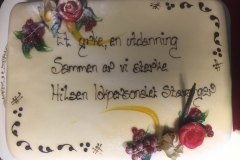 Et yrke, en utdanning
Sammen er vi sterke
Hilsen lokpersonalet Stavanger